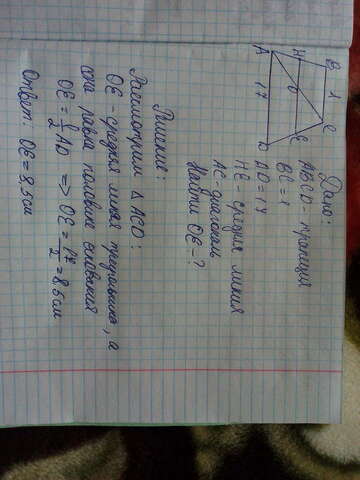 Дано:
ABCD - трапеция
BC = 1
AD = 17
HE - средняя линия
AC - диагональ
Найти OE - ?
B 1 C
H O E
A 17 D
Решение:
Рассмотрим Δ ACD:
OE - средняя линия треугольника, а
она равна половине основания
OE = 1/2 AD => OE = 17/2 = 8,5 см
Ответ: OE = 8,5 см